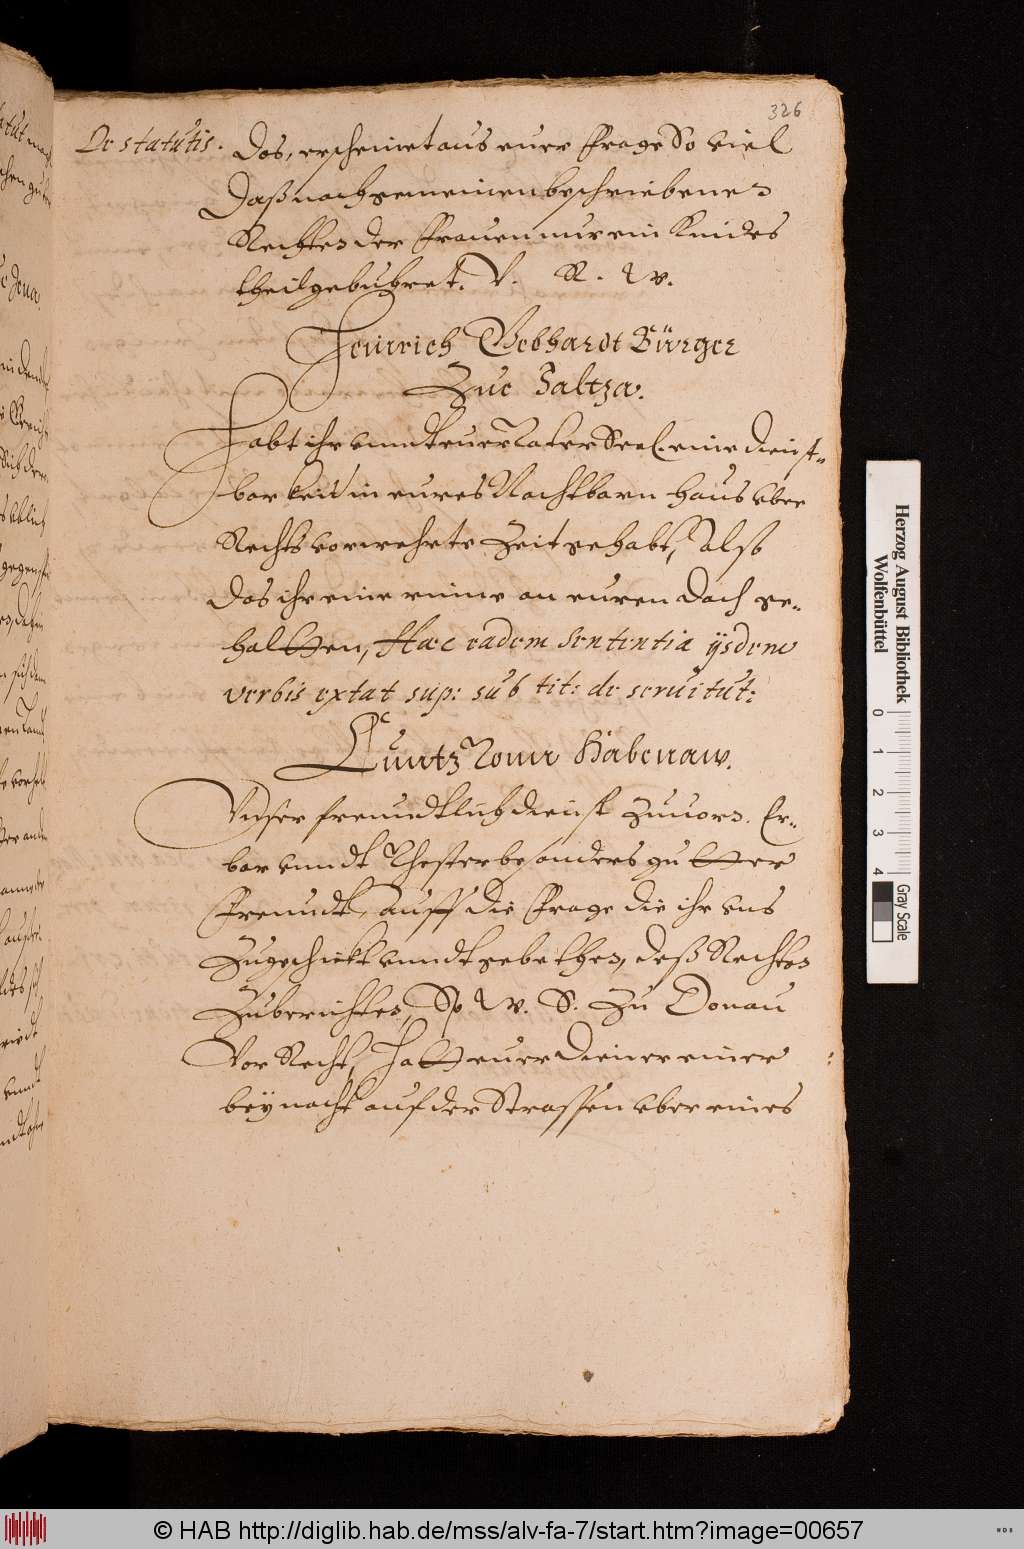 326
De statutis.
Das, erscheinet aus euer Frage So viel
Daß nach gemeinen beschriebenen
Rechten der Frauen nur ein Kindes
theil gebuhret. V. R. W.
Heinrich Gebhardt Bürger
Zue Saltza.
Habt ihr vnndt euer Vater Seel. eine dienst-
barkeit in eures Nachtbarn Haus vber
Rechts vorwehrte Zeit gehabt, Alsß
das ihr eine rinne an euren Dach ge-
haltten, Hæc eadem sententia ijsdem
verbis extat sup: sub tit: de seruitut:
Cuntz Habenaw.
Vnser freundtlich dienst Zuuorn. Er-
bar vnndt Vhester besonders gutter
Freundt, Auff die Frage die ihr vns
Zugeschickt vnndt gebethen, deß Rechten
Zuberichten, Sp. W. S. Zu Donau
Vor Recht, Hatt euer Diener einer
bey nacht auf der Strassen vber eines
Herzog August Bibliothek
Wolfenbüttel
0 1 2 3 4
Gray Scale
© HAB http://diglib.hab.de/mss/alv-fa-7/start.htm?image=00657